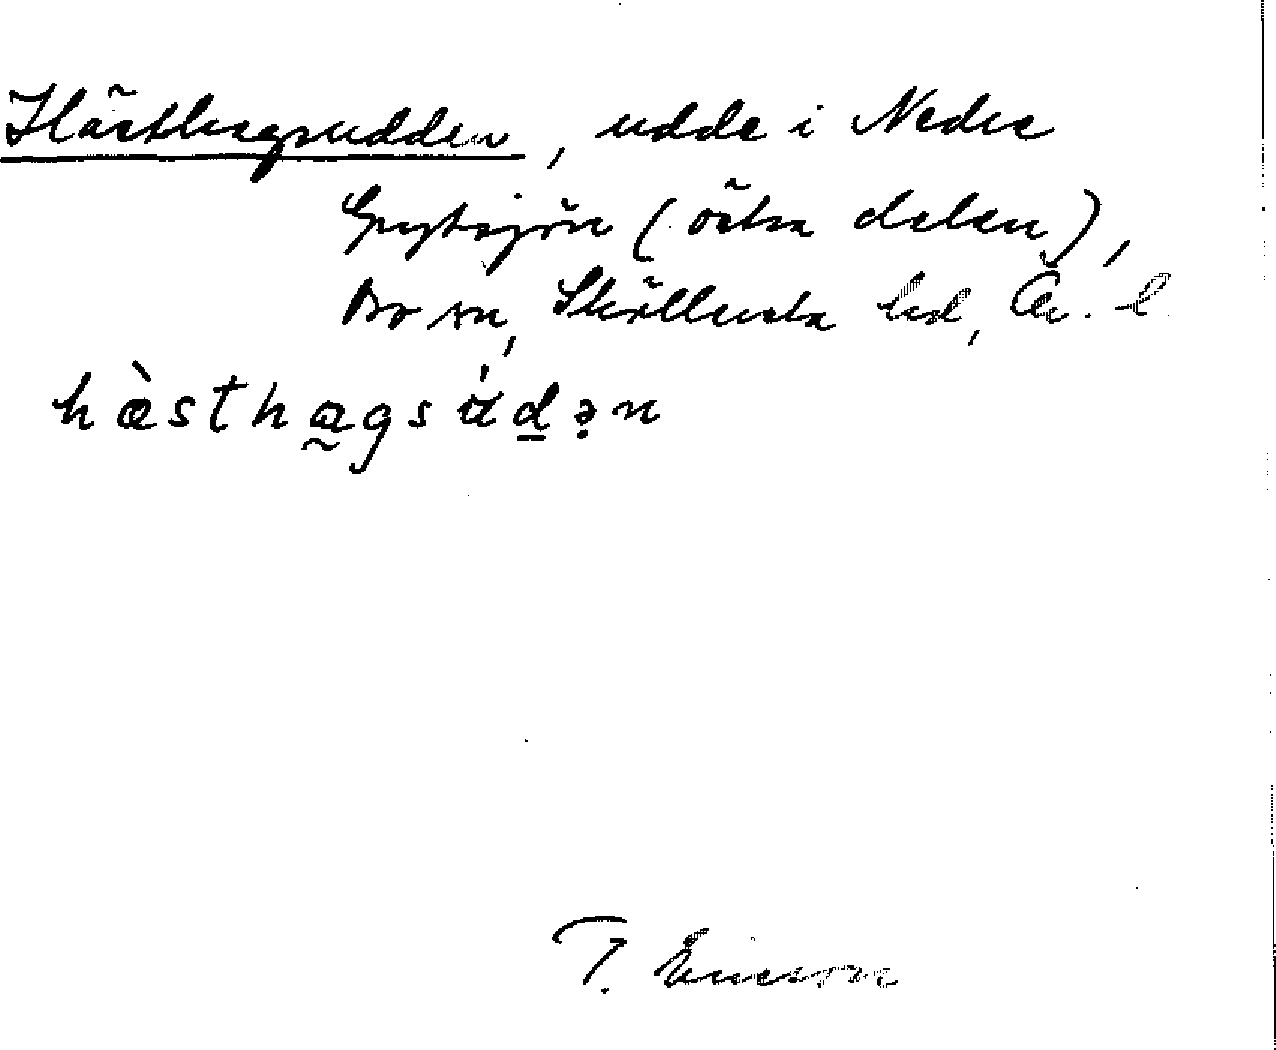 Hästhagsudden, udde i Nedre
Grytsjön (östra delen),
Bo sn, Sköllersta hd, Ör. l.
hæ̀sthagsúdən
T. Ericsson